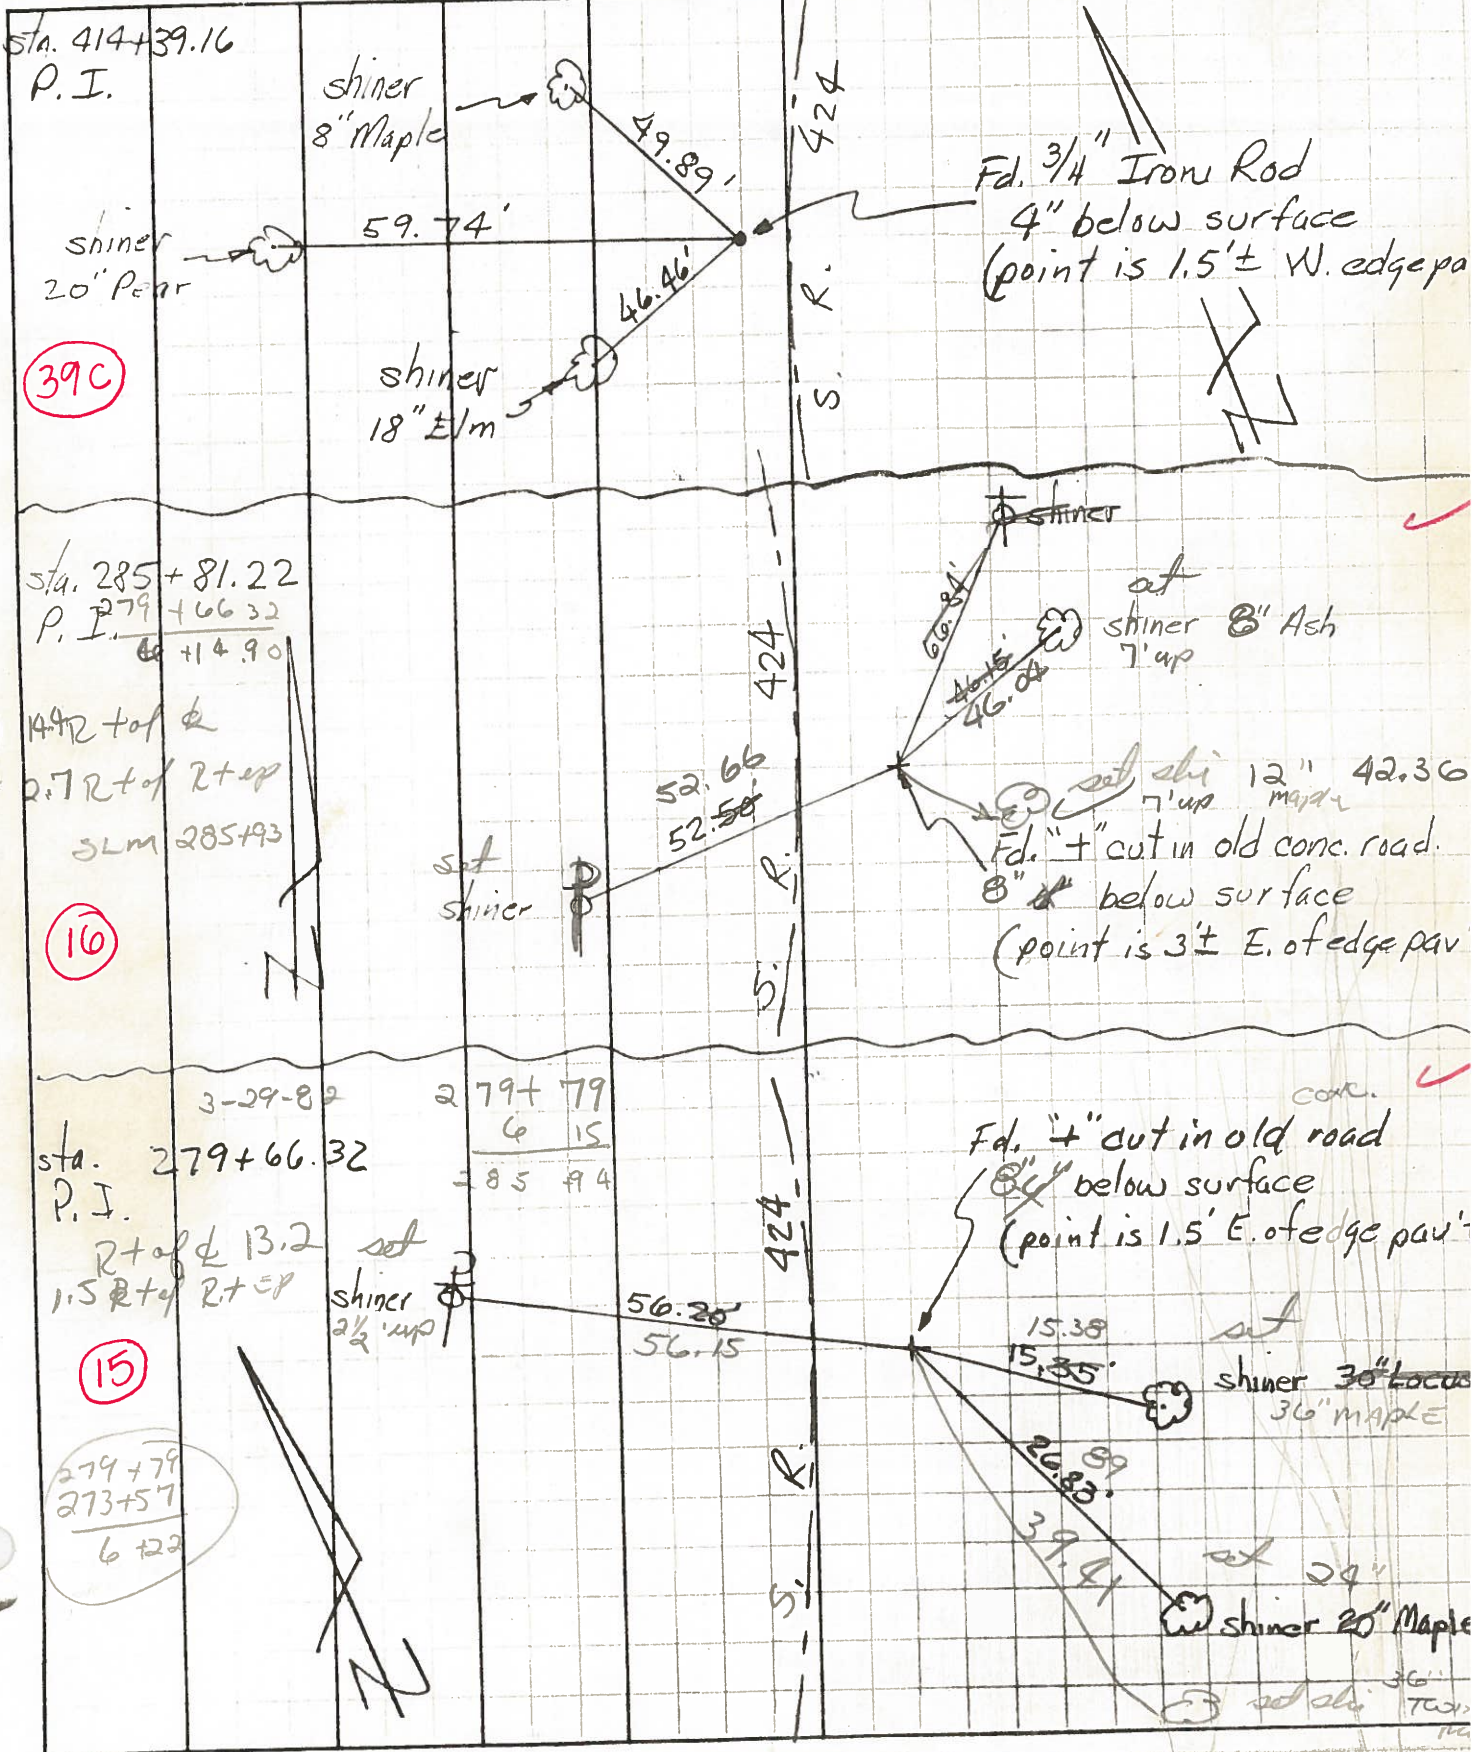 sta. 414+39.16
P. I.
shiner
8" Maple
49.89'
59.74'
46.46'
shiner
20" Pear
shiner
18" Elm
39C
S. R. 424
Fd. 3/4" Iron Rod
4" below surface
(point is 1.5'± W. edge pa
N
sta. 285+81.22
P. I. 279+66 32
6 +14.90
2.7 Rt of Rt ep
SLM 285+93
16
N
set
shiner
52.66
52.50'
S. R. 424
shiner
66.84'
46.15'
46.04
set
shiner 8" Ash
7' up
set shi 12" 42.36
7' up maple
Fd. "+" cut in old conc. road.
8" below surface
(point is 3'± E. of edge pav'
3-29-82
279+ 79
6 15
285 +94
sta. 279+66.32
P. I.
Rt of ℄ 13.2
1.5 Rt of Rt EP
15
279+79
273+57
6+22
N
set
shiner
2½' up
56.20'
56.15
S. R. 424
conc.
Fd. "+" cut in old road
8" 4" below surface
(point is 1.5' E. of edge pav't
15.38
15.35'
set
shiner 30" Locus
36" MAPLE
89
26.83'
39.41
set 24"
shiner 20" Maple
set shi 36"